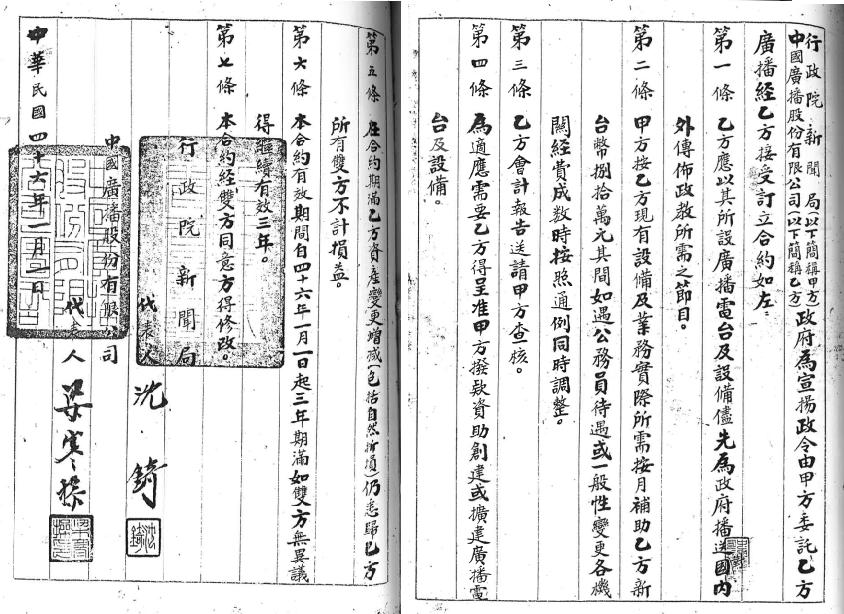 行政院新聞局(以下簡稱甲方)
中國廣播股份有限公司(以下簡稱乙方)
政府為宣揚政令由甲方委託乙方
廣播經乙方接受訂立合約如左:
第一條 乙方應以其所設廣播電台及設備儘先為政府播送國內
外傳佈政教所需之節目。
第二條 甲方按乙方現有設備及業務實際所需按月補助乙方新
台幣捌拾萬元其間如遇公務員待遇或一般性變更各機
關經費成数時按照通例同時調整。
第三條 乙方會計報告送請甲方查核。
第四條 為適應需要乙方得呈准甲方撥款資助創建或擴建廣播電
台及設備。
第五條 在合約期滿乙方資產變更增減(包括自然折損)仍悉歸乙方
所有雙方不計損益。
第六條 本合約有效期間自四十六年一月一日起三年期滿如雙方無異議
得繼續有效三年。
第七條 本合約經雙方同意方得修改。
行政院新聞局
代表人 沈錡
沈錡
中國廣播股份有限公司
代表人 梁寒操
梁寒操
中華民國四十六年一月一日